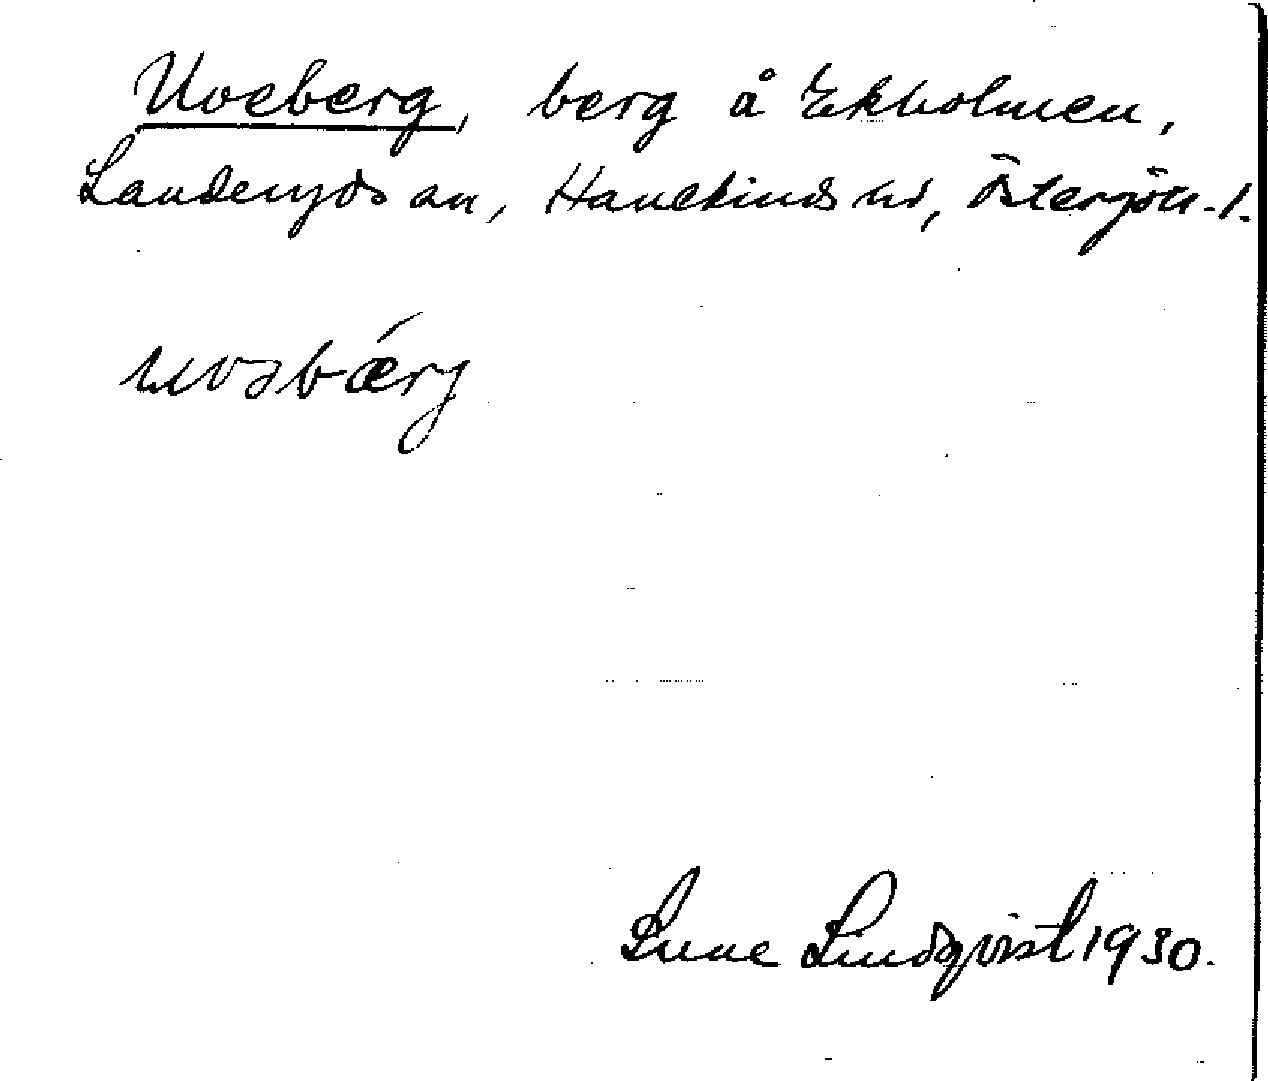 Uveberg, berg å Ekholmen,
Landeryds sn, Hanekinds hd, Östergötl. l.
uvəbǽrj
Sune Lindqvist 1930.